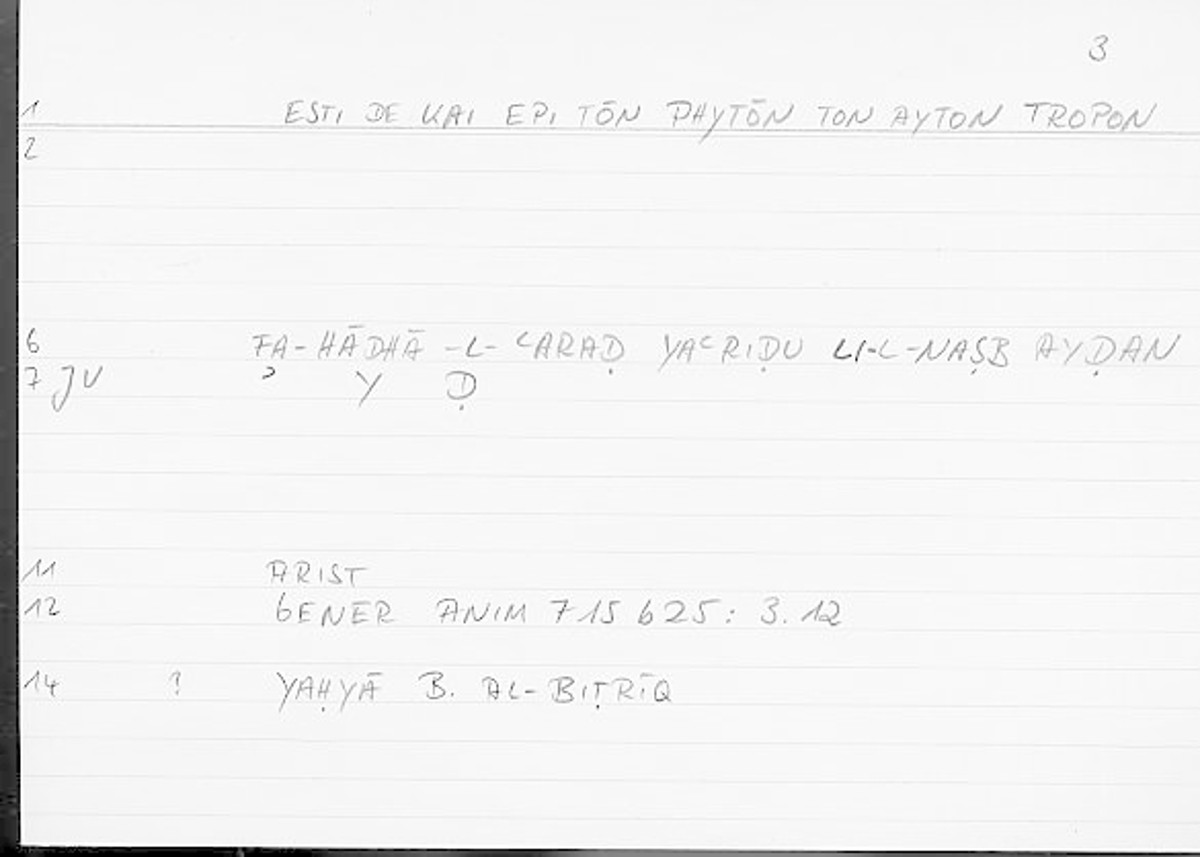 3
1 ESTI DE KAI EPI TŌN PHYTŌN TON AYTON TROPON
2
6 FA-HĀDHĀ -L- ʿARAḌ YAʿRIḌU LI-L-NAṢB AYḌAN
7 JV ʾ Y Ḍ
11 ARIST
12 GENER ANIM 715 b25: 3.12
14 ? YAḤYĀ B. AL-BIṬRĪQ